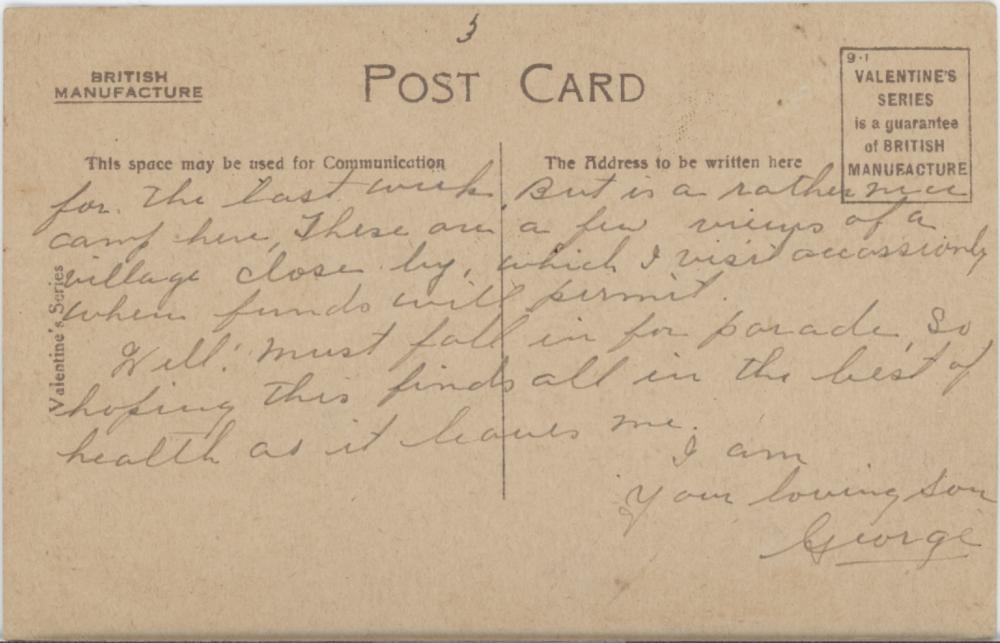 3
BRITISH
MANUFACTURE
POST CARD
9·1
VALENTINE'S
SERIES
is a guarantee
of BRITISH
MANUFACTURE
This space may be used for Communication
The Address to be written here
Valentine's Series
for. The last week. But is a rather nice
camp here, These are a few views of a
village close by, which I visit accassionly
when funds will permit.
Well! must fall in for parade, So
hoping this finds all in the best of
health as it leaves me.
I am
Your loving Son
George